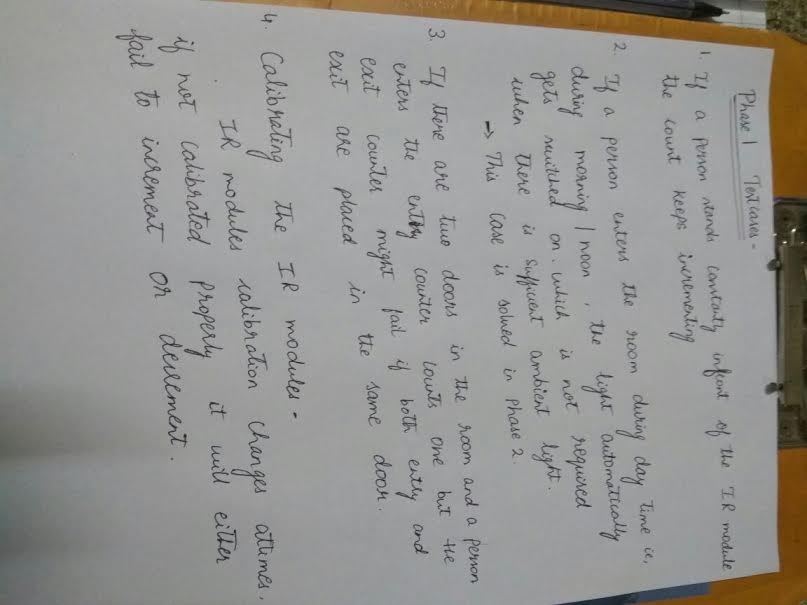 Phase 1 Testcases -
1. If a person stands constantly infront of the IR module
the count keeps incrementing
2. If a person enters the room during day time ie,
during morning / noon, the light automatically
gets switched on. which is not required
when there is sufficient ambient light.
→ This case is solved in Phase 2.
3. If there are two doors in the room and a person
enters the entry counter counts one but the
exit counter might fail if both entry and
exit are placed in the same door.
4. Calibrating the IR modules -
IR modules calibration changes attimes.
if not calibrated properly it will either
fail to increment or decrement.